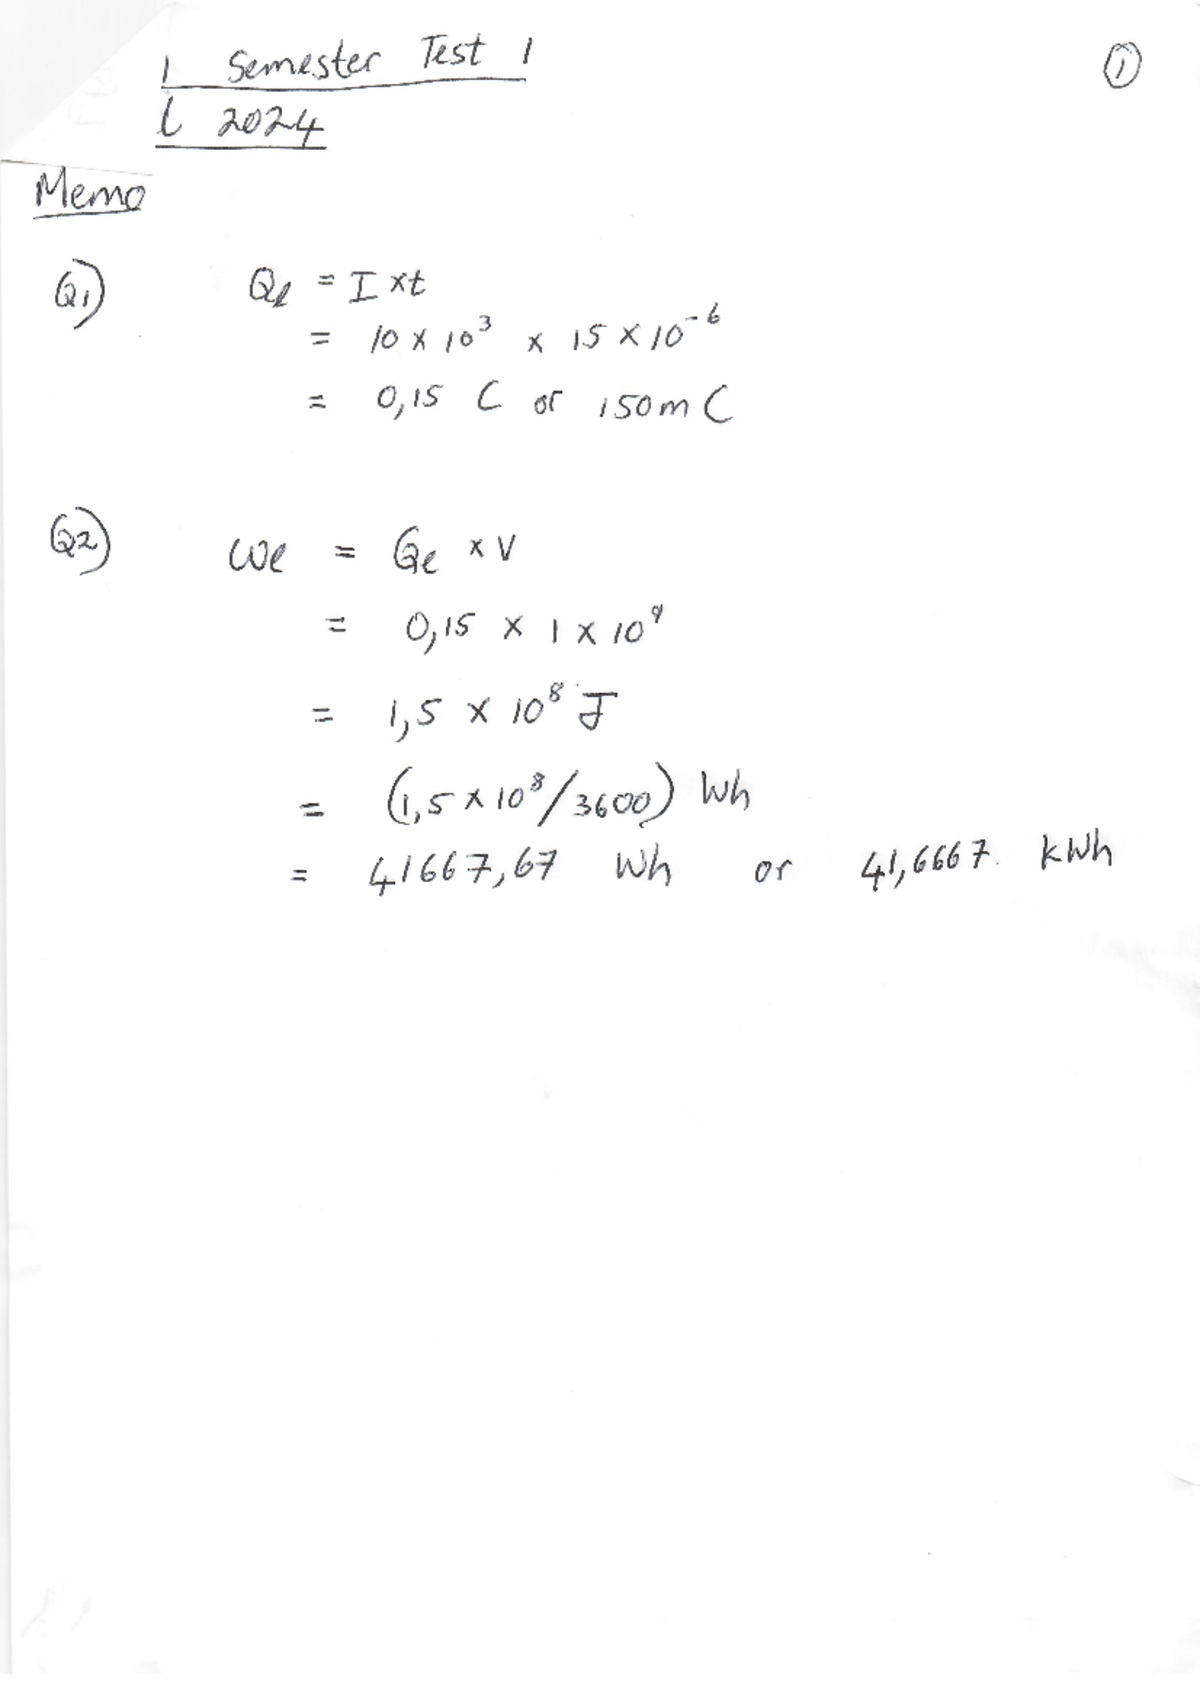 1 Semester Test 1
①
l 2024
Memo
Q1) Qe = I x t
= 10 x 10³ x 15 x 10⁻⁶
= 0,15 C or 150m C
Q2) We = Qe x V
= 0,15 x 1 x 10⁹
= 1,5 x 10⁸ J
= (1,5 x 10⁸/3600) Wh
= 41667,67 Wh or 41,6667. kWh